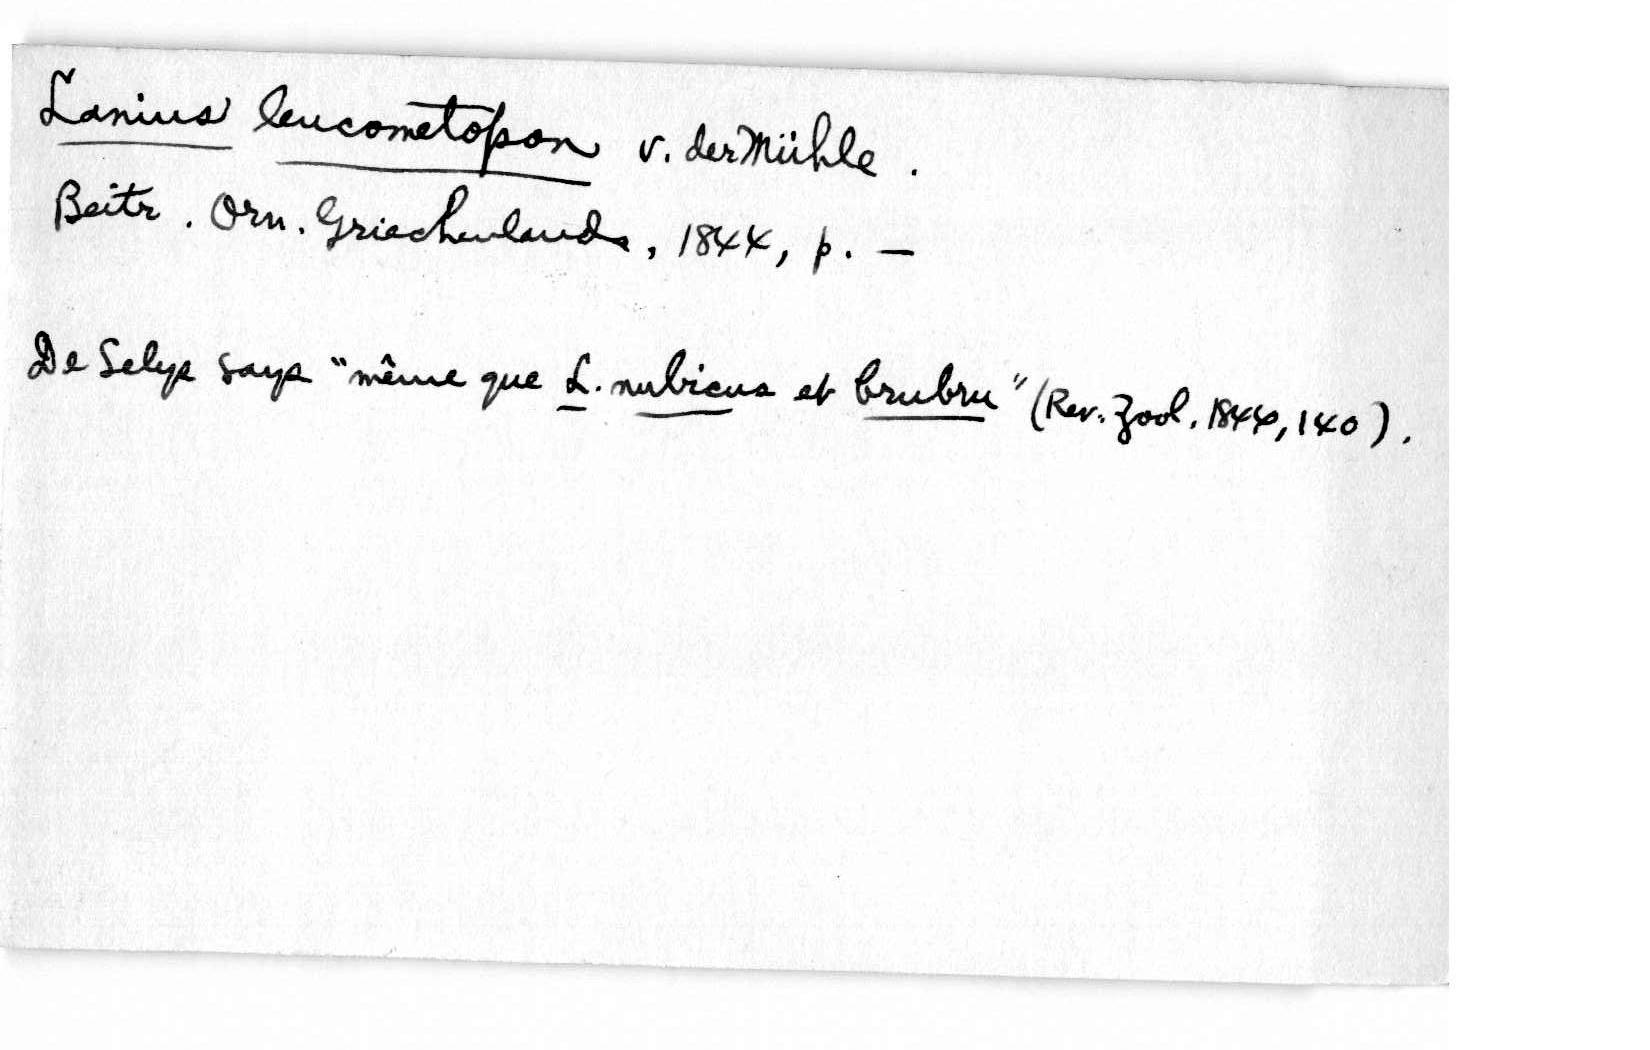 Lanius leucometopon v. der Mühle.
Beitr. Orn. Griechenlands, 1844, p. —
De Selys says "même que L. nubicus et brubru" (Rev. Zool. 1844, 140).